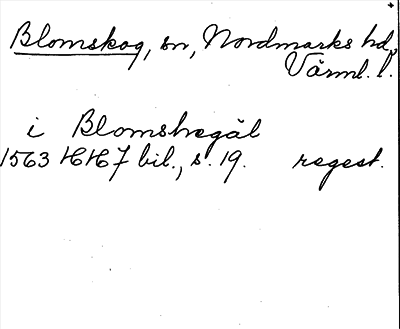 Blomskog, sn, Nordmarks hd,
Värml. l.
i Blomskogäl
1563 HH 7 bil., s. 19. regest.